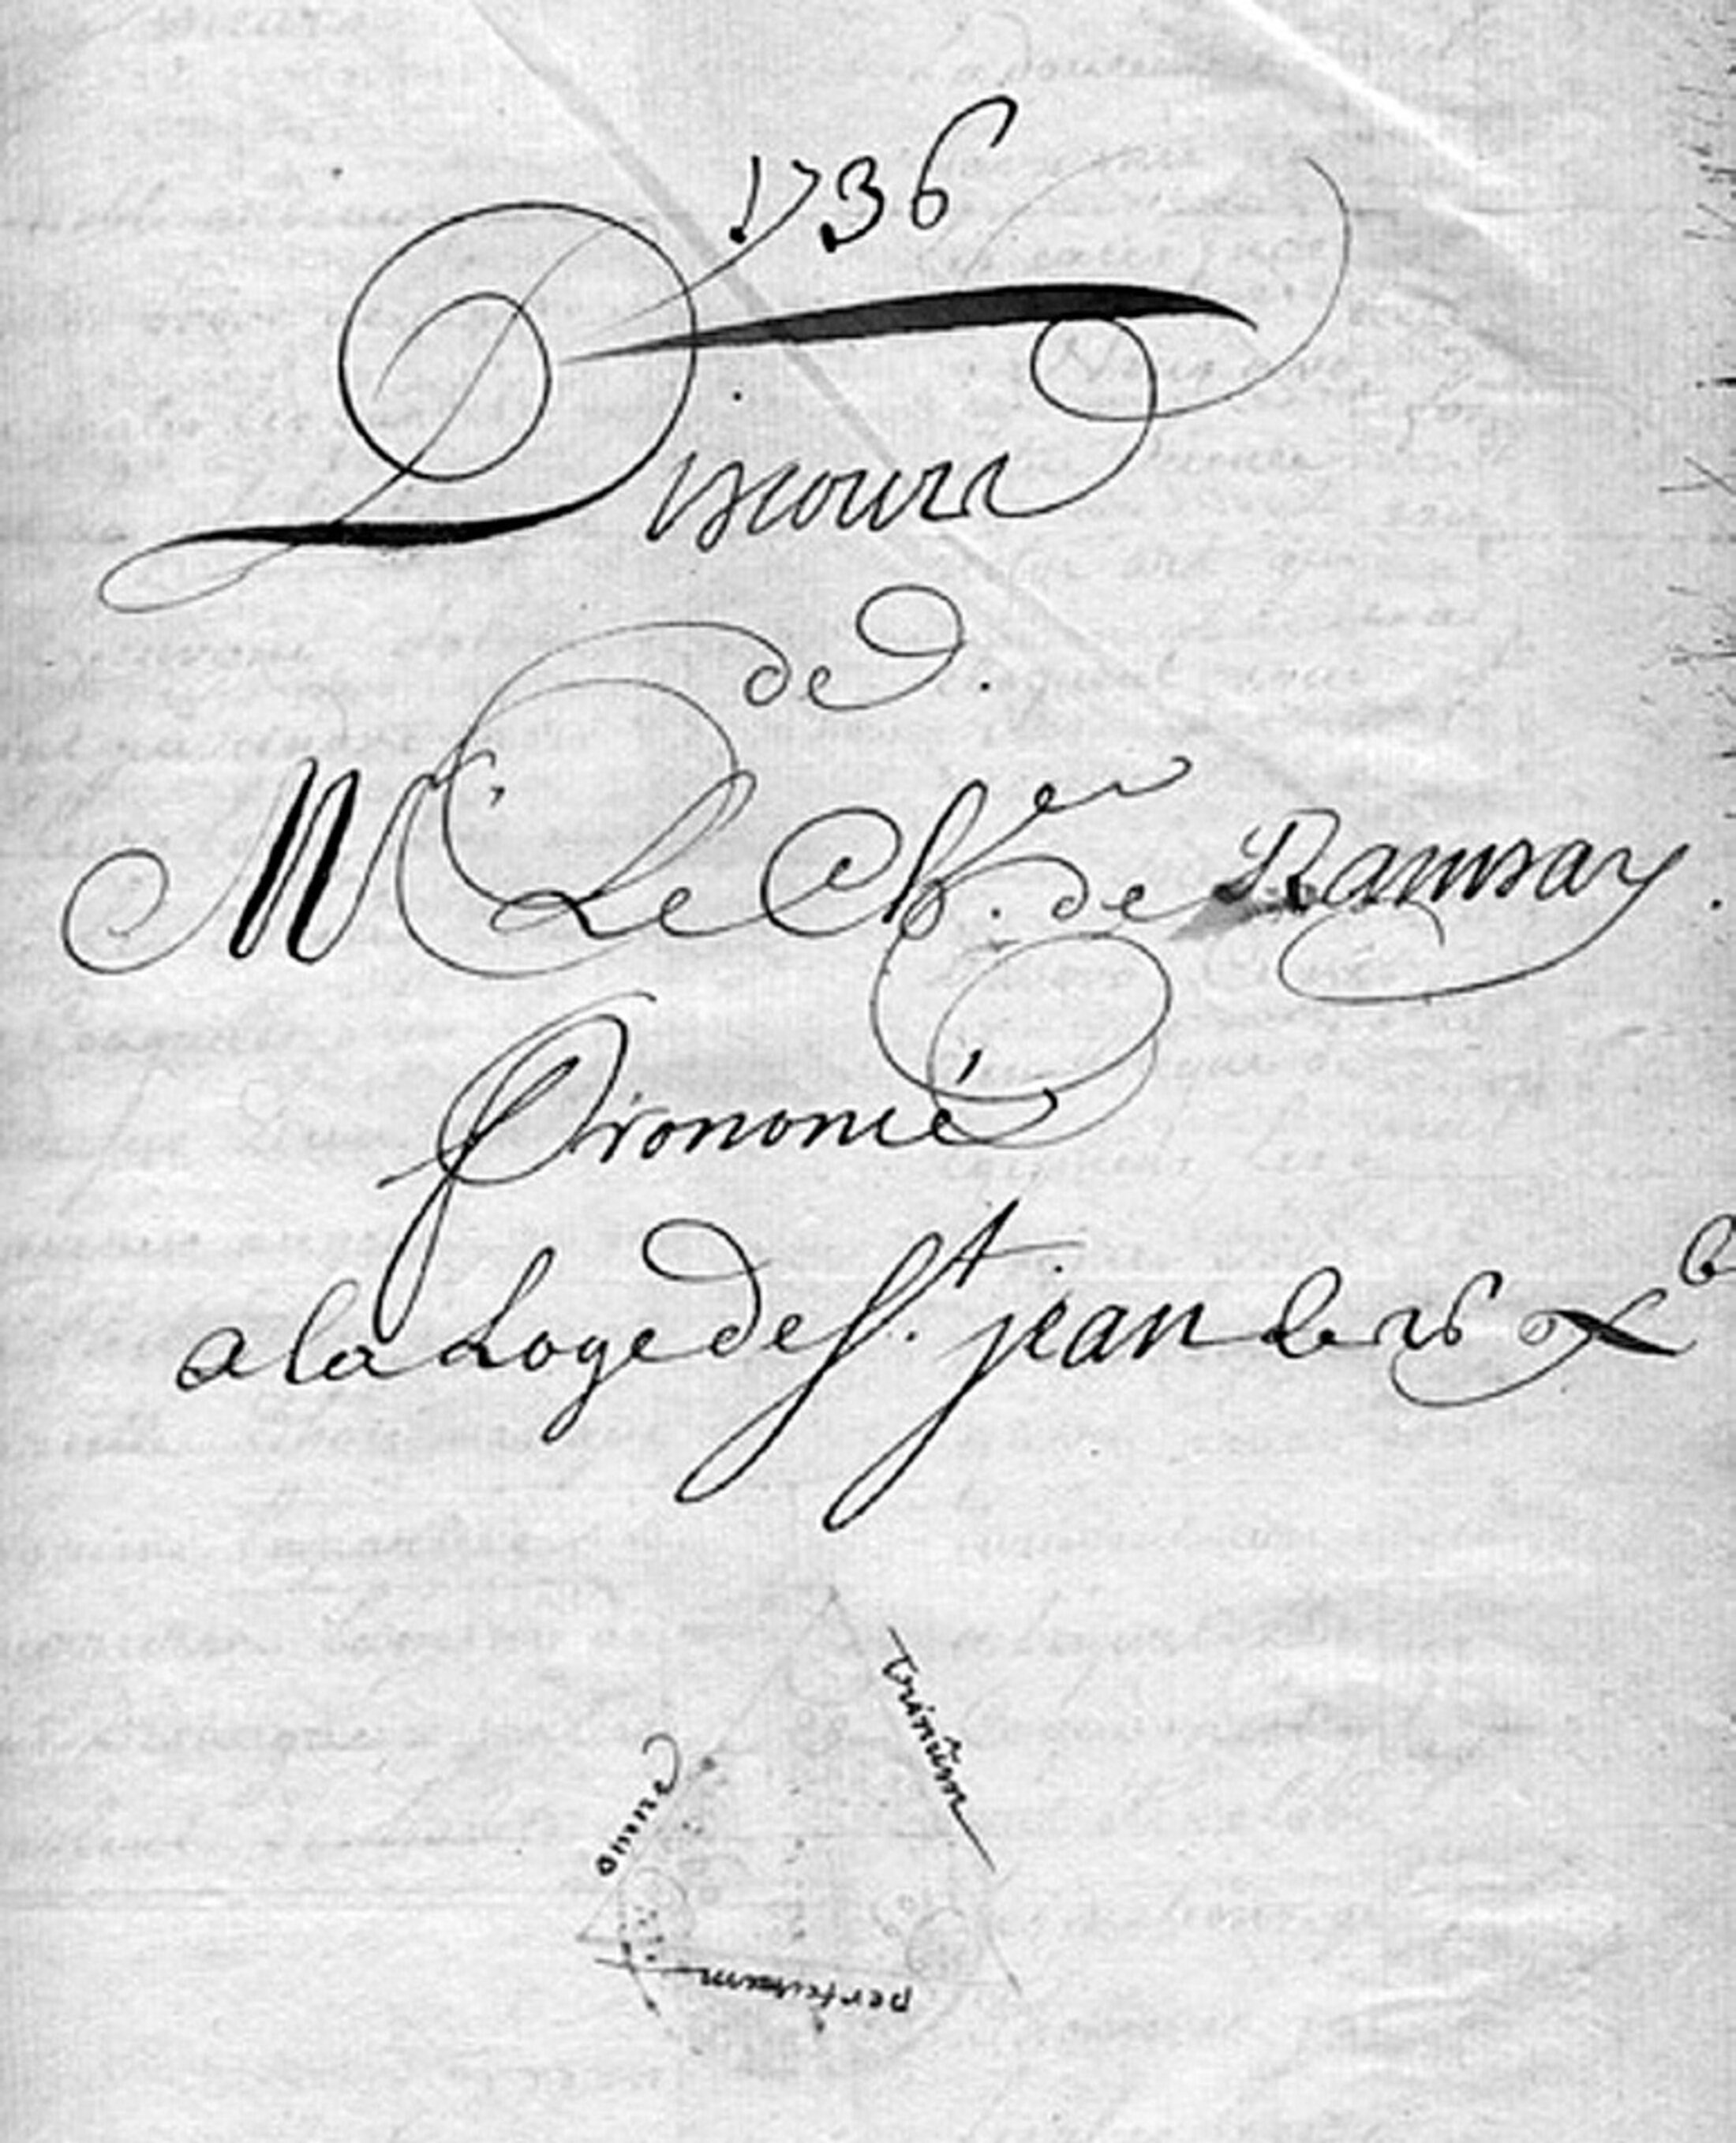 1736
Discours
de
Mr. Le Chev.er de Ramsay.
Prononcé
a la Loge de St. jean le 26 Xb
omne
trinum
perfectum